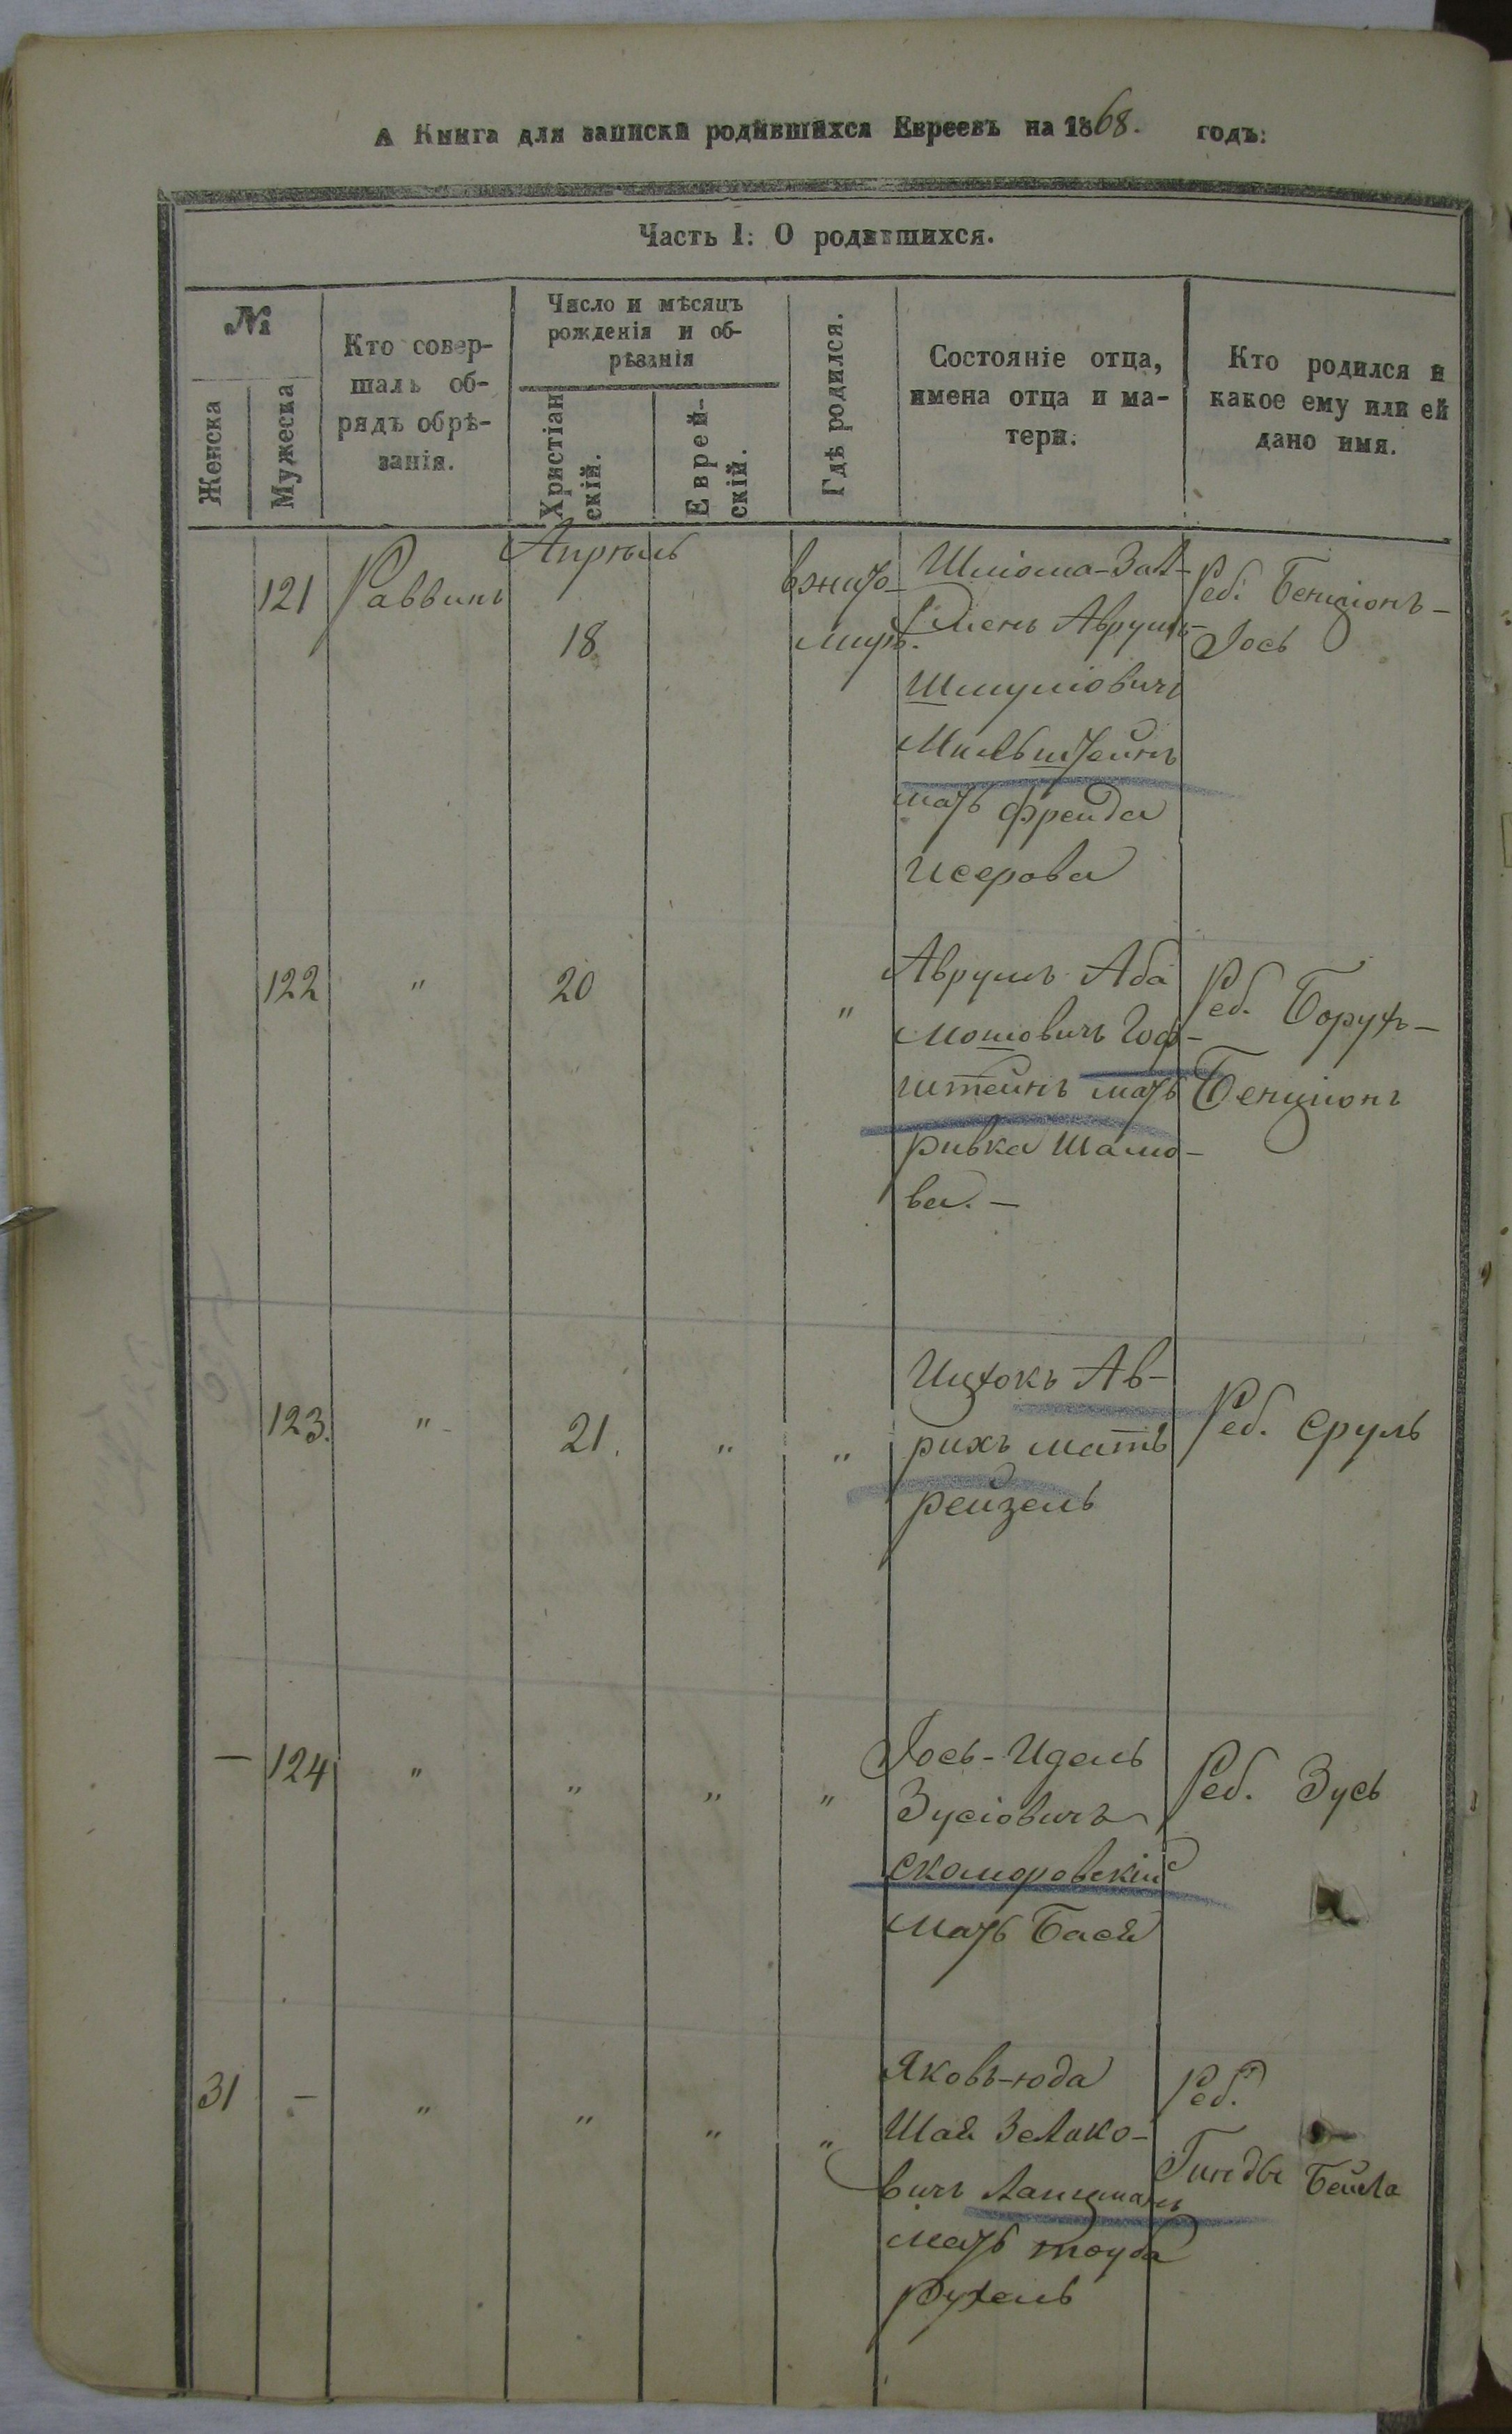 А Книга для записки родившихся Евреевъ на 1868. годъ:
Часть I: О родившихся.
№
Женска
Мужеска
Кто совер-
шалъ об-
рядъ обрѣ-
занія.
Число и мѣсяцъ
рожденія и об-
рѣзанія
Христіан
скій.
Еврей-
скій.
Гдѣ родился.
Состояніе отца,
имена отца и ма-
тери.
Кто родился и
какое ему или ей
дано имя.
Апрель
121
Раввинъ
18
Вжито-
миръ.
Шліома-Зал-
Аврумъ-
Шмуліовичъ
Мильштейнъ
мать Фрейда
Исерова
Реб. Бенціонъ-
Іось
122
"
20
"
Аврумъ Аба
Мошовичъ Гоф-
штейнъ мать
Ривка Шамо-
ва. —
Реб. Борухъ-
Бенціонъ
123.
"
21.
"
"
Ицхокъ Ав-
рихъ мать
Рейзель
Реб. Сруль
—
124
"
"
"
"
Іось-Идель
Зусіовичъ
Скоморовскій
мать Бася
Реб. Зусь
31
—
"
"
"
"
Яковъ-Юда
Шая Зелико-
вичъ Ланцманъ
мать Тоуба
Рухель
Реб.
Гинды Бейла